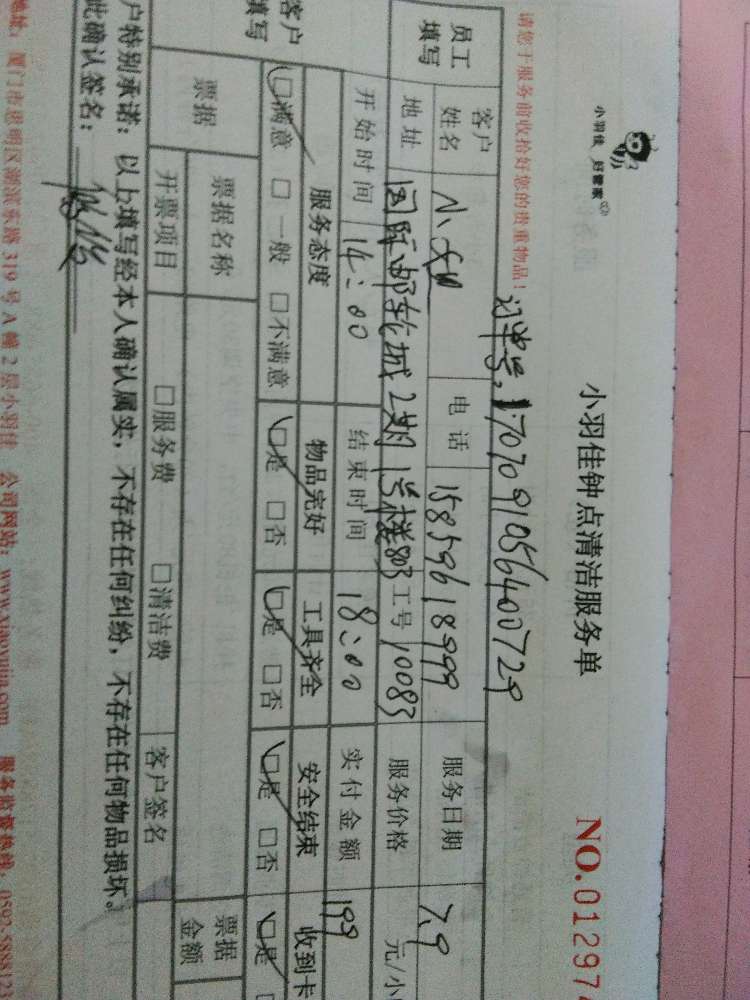 小羽佳 好管家
小羽佳钟点清洁服务单
NO.01297
请您于服务前收拾好您的贵重物品!
订单号:1707091056400729
员工填写
客户姓名 电话 15859618999 服务日期 7.9
地址 国际邮轮城2期1号楼803 工号 10083 服务价格 元/小
开始时间 14:00 结束时间 18:00 实付金额 199
客户填写
服务态度 物品完好 工具齐全 安全结束 收到卡
□满意 □一般 □不满意 □是 □否 □是 □否 □是 □否 □是
票据 票据名称 票据金额
开票项目 □服务费 □清洁费 客户签名
户特别承诺:以上填写经本人确认属实,不存在任何纠纷,不存在任何物品损坏。
此确认签名:
地址:厦门市思明区湖滨东路319号A幢2层小羽佳 公司网站:www.xiaoyujia.com 服务监督热线:0592-5888123